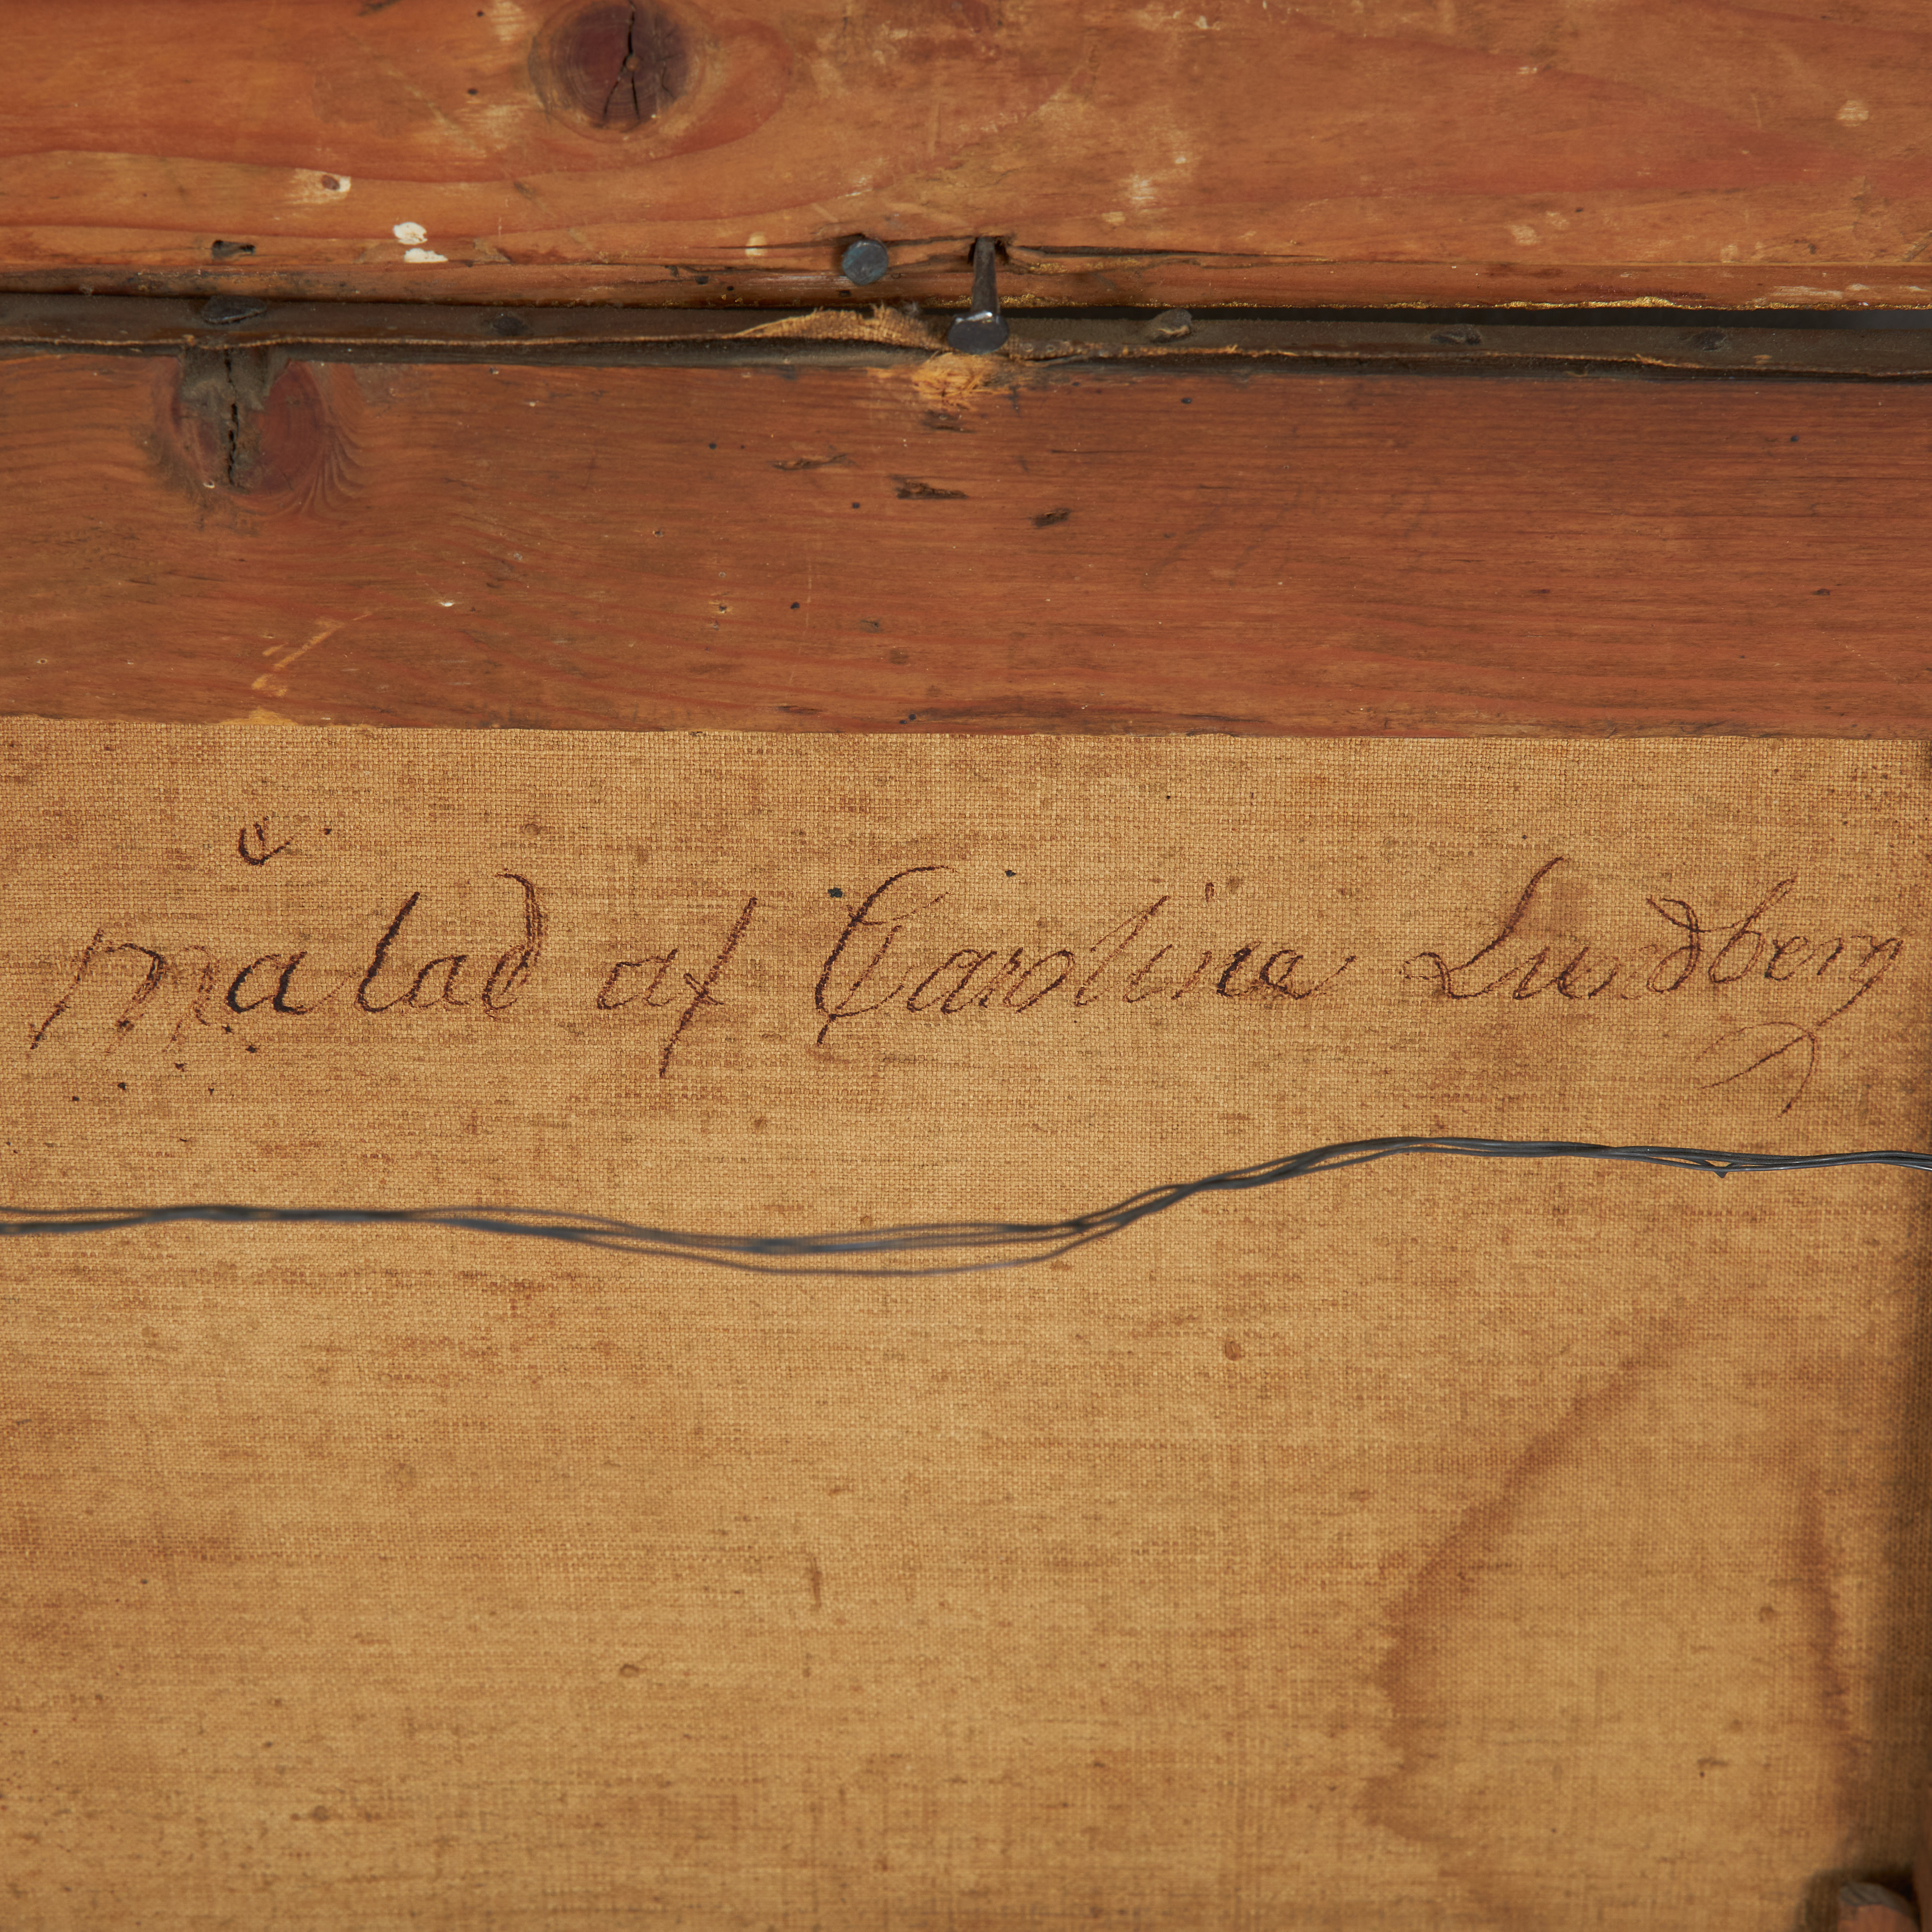 Målad af Carolina Lundberg